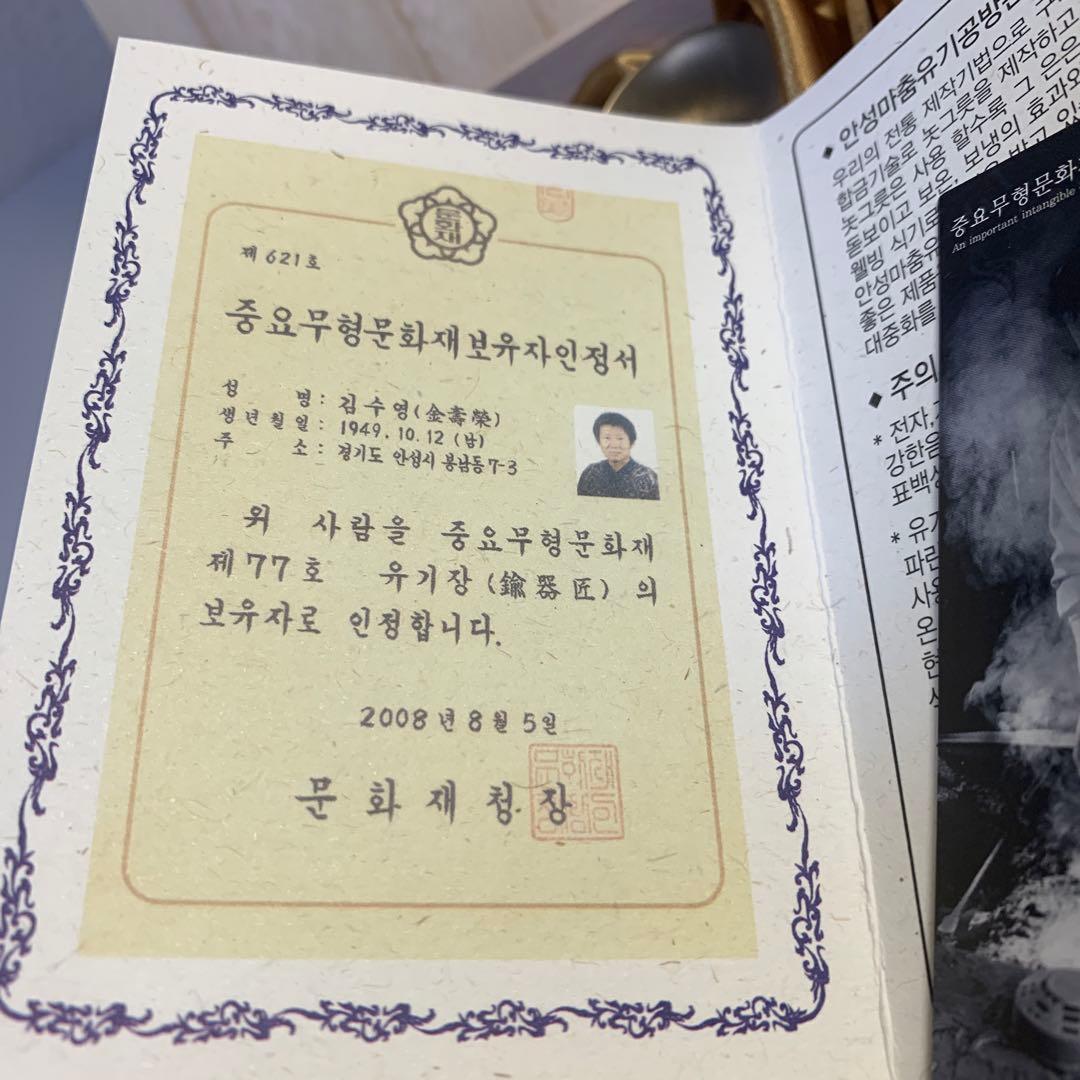 문화재
제 621호
중요무형문화재보유자인정서
성 명 : 김수영(金壽榮)
생년월일 : 1949. 10. 12 (남)
주 소 : 경기도 안성시 봉남동7-3
위 사람을 중요무형문화재
제77호 유기장(鍮器匠)의
보유자로 인정합니다.
2008년 8월 5일
문화재청장
◆ 안성마춤유기공방은
우리의 전통 제작기법으로
합금기술로 놋그릇을 제작하고
놋그릇은 사용 할수록 그 은은
돋보이고 보온, 보냉의 효과와
웰빙 식기로
안성마춤유
좋은 제품
대중화를
◆ 주의
* 전자,
강한음
표백성
* 유기
파란
사용
온
현
중요무형문화
An important intangible